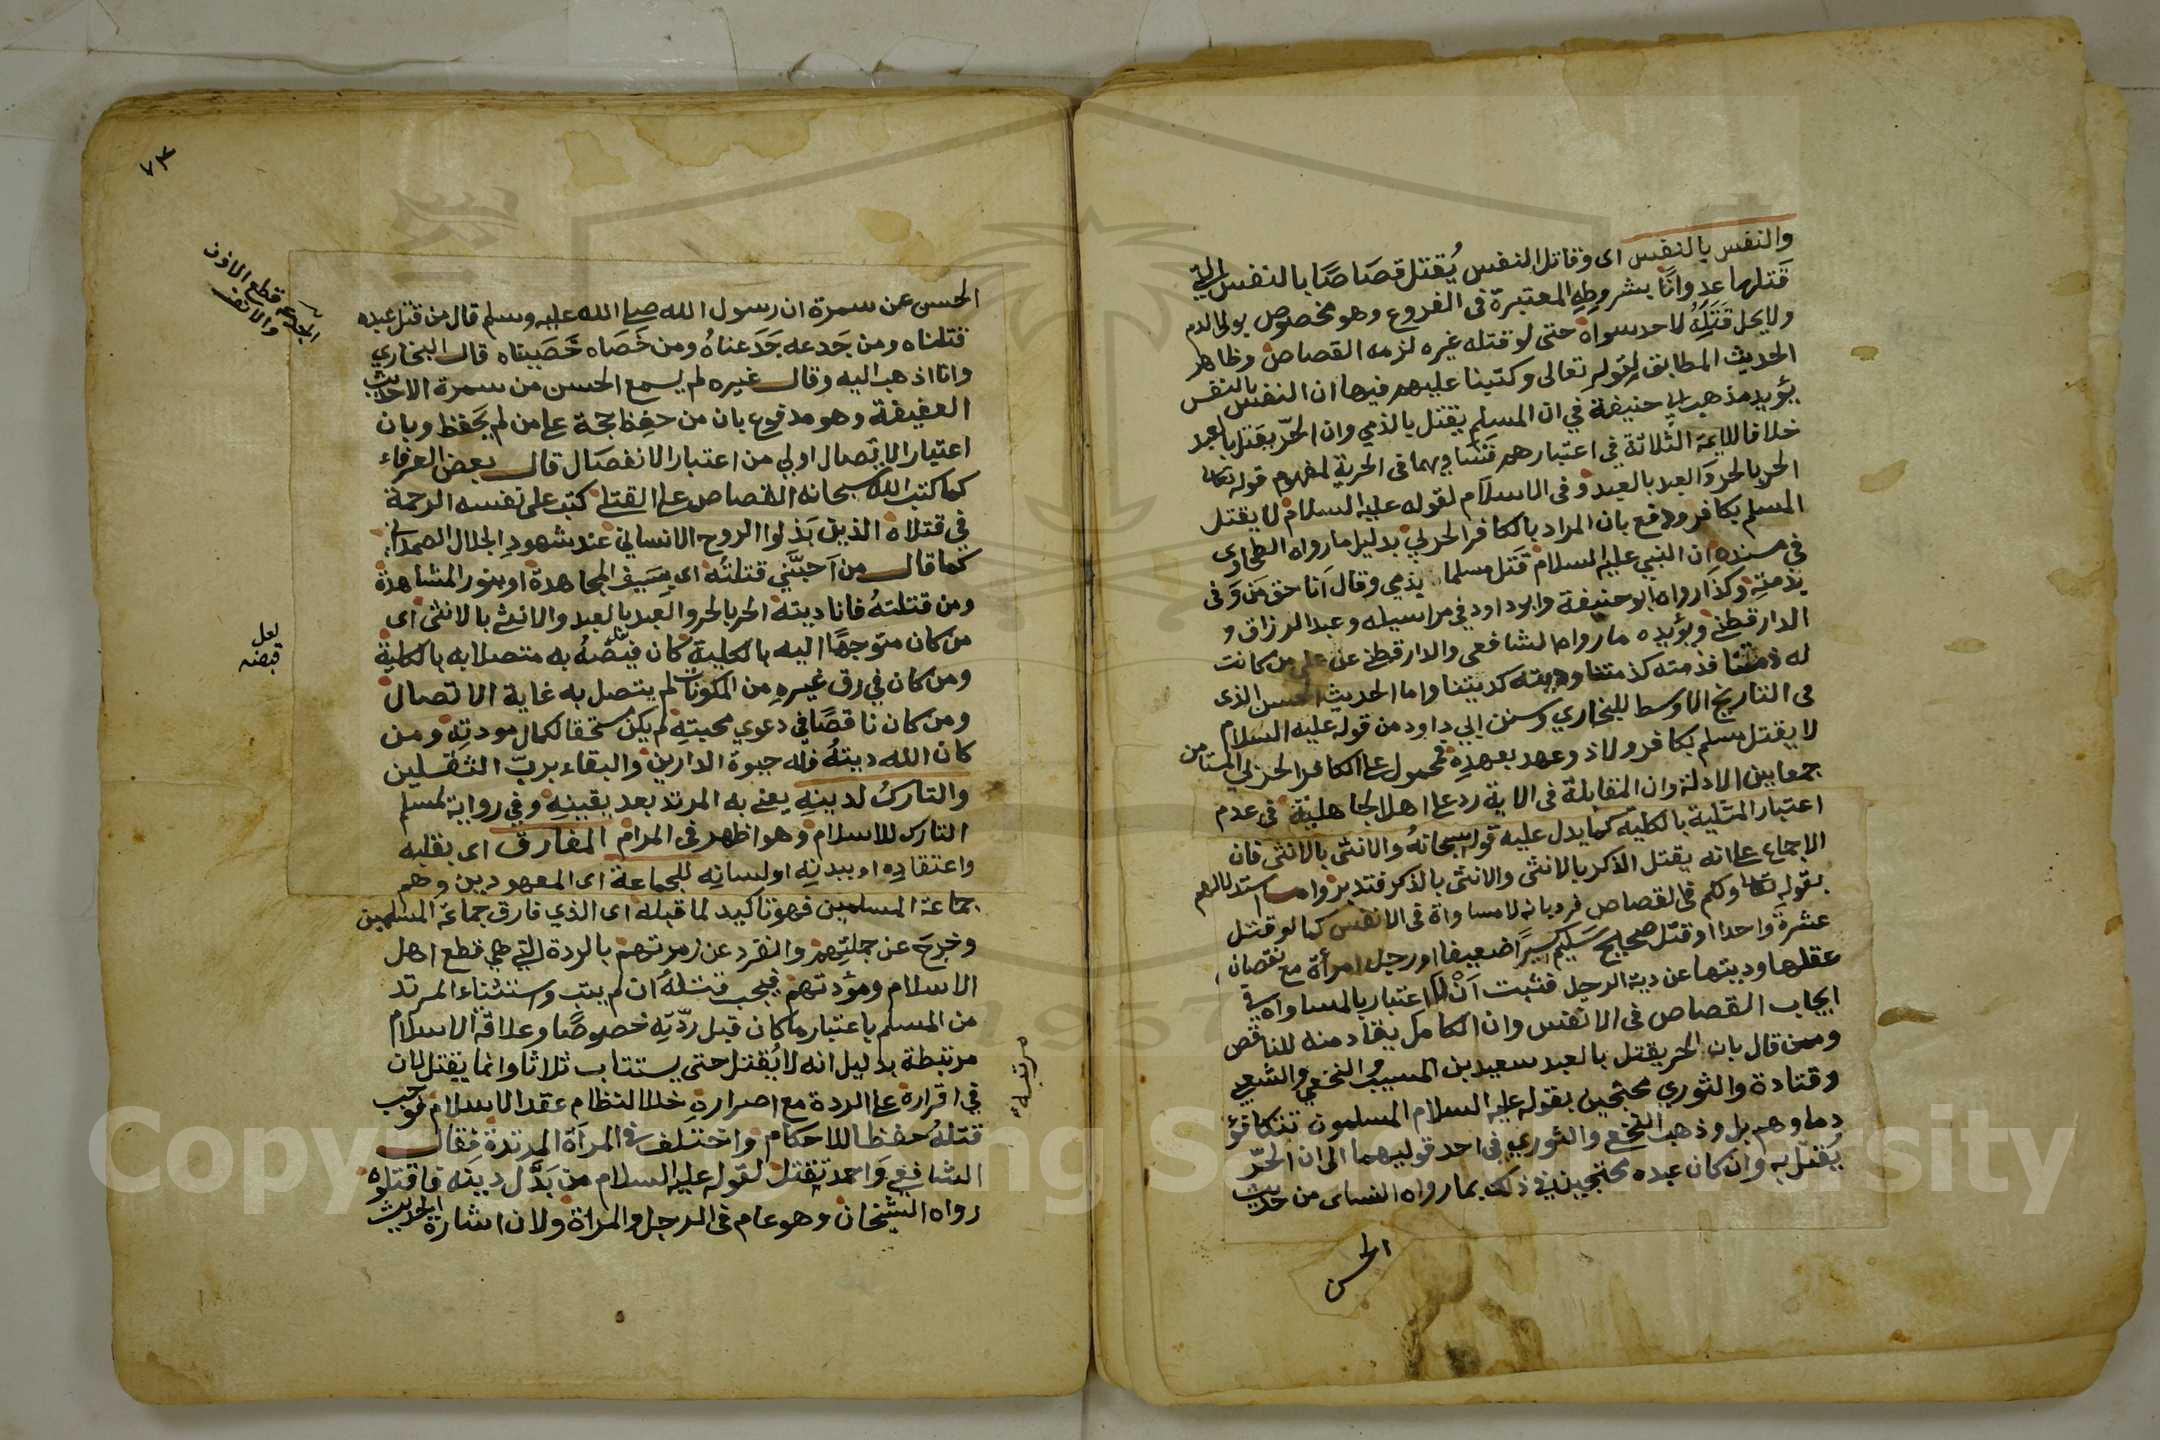 والنفس بالنفس اى وقاتل النفس يُقتل قصاصًا بالنفس التي
قتلها عدوانًا بشروطه المعتبرة في الفروع وهو مخصوص بولي الدم
ولايحل قَتلُهُ لاحد سواه حتى لو قتله غيره لزمه القصاص وظاهر
الحديث المطابق لقوله تعالى وكتبنا عليهم فيها ان النفس بالنفس
يؤيد مذهب ابي حنيفة في ان المسلم يقتل بالذمي وان الحرّ يقتل بالعبد
خلافا للايمة الثلاثة في اعتبارهم تساويهما فى الحرية لمفهوم قوله تعالى
الحر بالحر والعبد بالعبد وفى الاسلام لقوله عليه السلام لا يقتل
المسلم بكافر ودفع بان المراد بالكافر الحربي بدليل ما رواه الطحاوى
في مسنده ان النبي عليه السلام قَتل مسلما بذمي وقال انا حق من وَفى
بذمته وكذا رواه ابو حنيفة وابو داود في مراسيله وعبد الرزاق و
الدارقطني ويؤيده ما رواه الشافعى والدارقطني عن علي من كانت
له ذمتنا فذمته كذمتنا وديته كديتنا واما الحديث الحسن الذى
في التاريخ الاوسط للبخاري وسنن ابي داود من قوله عليه السلام
لا يقتل مسلم بكافر ولا ذو عهد بعهده فمحمول على الكافر الحربي المستامن
جمعا بين الادلة وان المقابلة فى الاية رد على اهل الجاهلية في عدم
اعتبار المثلية بالكلية كما يدل عليه قوله سبحانهُ والانثى بالانثى فان
الاجماع على انه يقتل الذكر بالانثى والانثى بالذكر فتدبر واما استدلالهم
بقوله تعالى ولكم في القصاص فرد بانه لا مساواة فى الانفس كما لو قتل
عشرة واحدا او قتل صحيح سليم كسيرًا ضعيفا او رجل امرأة مع نقصان
عقلها وديتها عن دية الرجل فثبت اَنْ لا اعتبار بالمساواه في
ايجاب القصاص فى الانفس وان الكامل يقاد منه للناقص
وممن قال بان الحر يقتل بالعبد سعيد بن المسيب والنخعي والشعبي
وقتادة والثوري محتجين بقوله عليه السلام المسلمون تتكافؤ
دماوهم بل وذهب النخعي والثوري في احد قوليهما الى ان الحرّ
يُقتل به وان كان عبده محتجين في ذلك بما رواه النساى من حديث
الحسن
٧٣
الحسن عن سمرة ان رسول الله صلى الله عليه وسلم قال من قتل عبده
قتلناه ومن جَدعه جَدَعناهُ ومن خَصَاه خَصَيناه قال البخاري
وانا اذهب اليه وقال غيره لم يسمع الحسن من سمرة الا حديث
العقيقة وهو مدفوع بان من حفِظ حجة على من لم يَحفظ وبان
اعتبار الاتصال اولى من اعتبار الانفصال قال بعض العرفاء
كما كتب الله سبحانه القصاص على القتلى كتب على نفسه الرحمة
في قتلاه الذين بَذلوا الروح الانساني عند شهود الجلال الصمداني
كما قال من اَحبّني قتلتُه اى بِسَيف المجاهدة او بنور المشاهدة
ومن قتلتهُ فانا ديته الحر بالحر والعبد بالعبد والانثى بالانثى اى
من كان متوجهًا اليه بالكلية كان فيضهُ به متصلا به بالكلية
ومن كان في رق غيرهِ من المكونات لم يتصل به غاية الاتصال
ومن كان ناقصًا في دعوي محبتهِ لم يكن مستحقا لكمال مودته ومن
كان الله ديتهُ فله حيوة الدارين والبقاء برب الثقلين
والتاركُ لدينهِ يعنى به المرتد بعد يقينه وفي رواية لمسلم
التارك للاسلام وهو اظهر فى المرام المفارق اى بقلبه
واعتقادِه او ببدنِه او لسانِه للجماعة اى المعهودين وهم
جماعة المسلمين فهو تاكيد لما قبله اى الذي فارق جماعة المسلمين
وخرجَ عن جملتِهم وانفرد عن زمرتهم بالردة التي هي قطع اهل
الاسلام ومؤدتهم فيجب قتلهُ ان لم يتب واستثناء المرتد
من المسلم باعتبار ما كان قبل ردّته خصوصًا وعلاقة الاسلام
مرتبطة بدليل انه لا يُقتل حتى يستتاب ثلاثا وانما يقتل لان
في اقراره على الردة مع اصراره خللا لنظام عقد الاسلام فوجب
قتلهُ حفظا للاحكام واختلف في المرأة المرتدة فقال
الشافعي واحمد تقتل لقوله عليه السلام من بَدَّل دينه فاقتلوه
رواه الشيخان وهو عام فى الرجل والمراة ولان اشارة الحديث
الجدعة قطع الاذن
والانف
لعل
قبضه